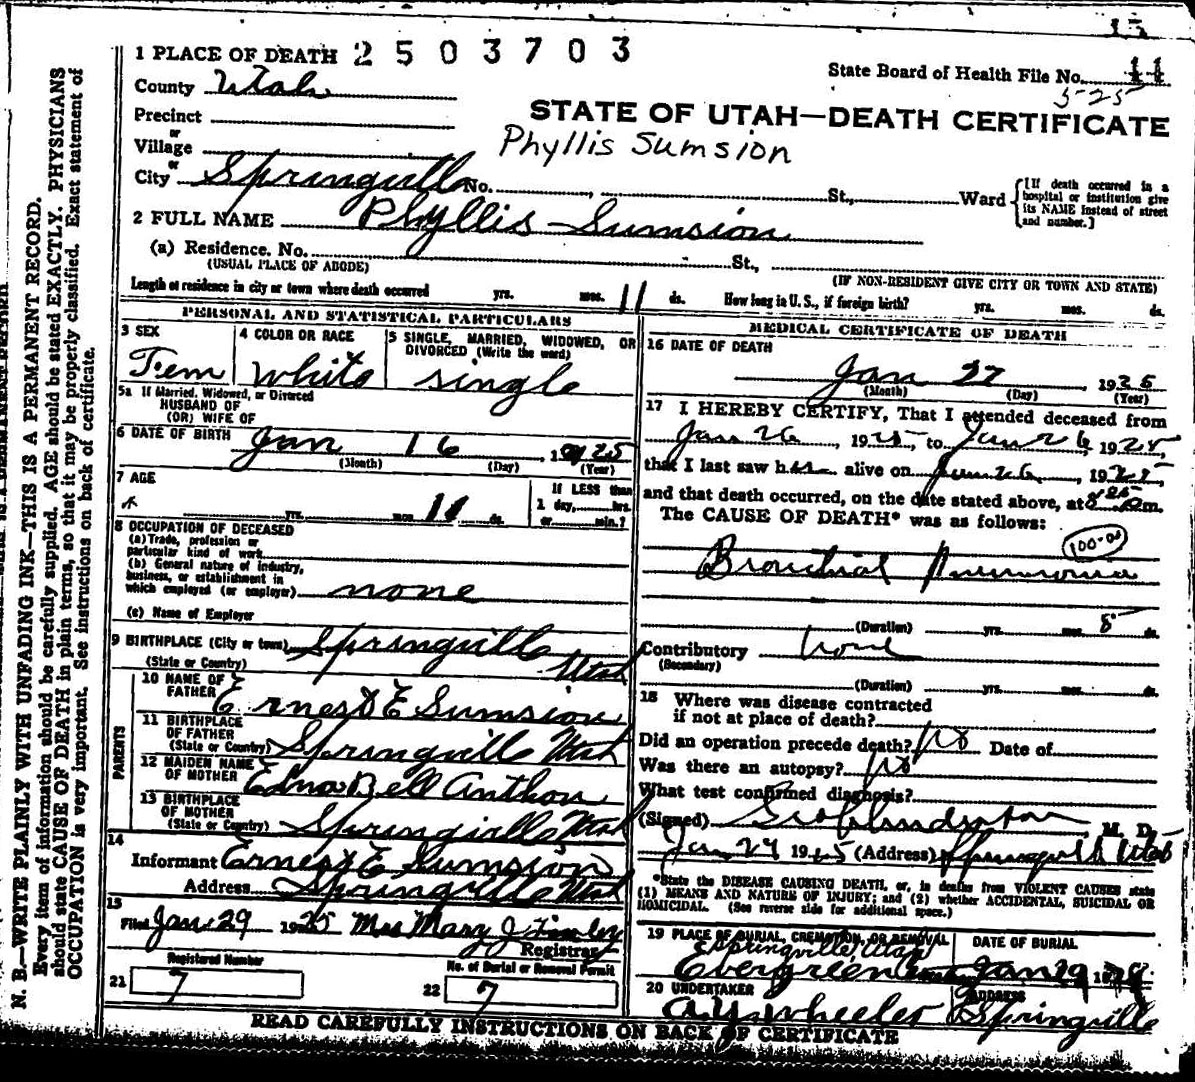 1 PLACE OF DEATH 2503703
State Board of Health File No. 44
525
County Utah
STATE OF UTAH—DEATH CERTIFICATE
Precinct
or
Village
Phyllis Sumsion
or
City Springville No. St., Ward {[If death occurred in a hospital or institution give its NAME instead of street and number.]
2 FULL NAME Phyllis Sumsion
(a) Residence. No. St.,
(USUAL PLACE OF ABODE) (IF NON-RESIDENT GIVE CITY OR TOWN AND STATE)
Length of residence in city or town where death occurred yrs. mos. 11 ds. How long in U. S., if foreign birth? yrs. mos. ds.
PERSONAL AND STATISTICAL PARTICULARS
3 SEX
Fem
4 COLOR OR RACE
White
5 SINGLE, MARRIED, WIDOWED, OR
DIVORCED (Write the word)
single
5a If Married, Widowed, or Divorced
HUSBAND OF
(OR) WIFE OF
6 DATE OF BIRTH Jan 16, 1925
(Month) (Day) (Year)
7 AGE
yrs. mos. 11 ds.
If LESS than
1 day, hrs.
or min.?
8 OCCUPATION OF DECEASED
(a) Trade, profession or
particular kind of work
(b) General nature of industry,
business, or establishment in
which employed (or employer) none
(c) Name of Employer
9 BIRTHPLACE (City or town) Springville
(State or Country) Utah
PARENTS
10 NAME OF
FATHER Ernest E Sumsion
11 BIRTHPLACE
OF FATHER
(State or Country) Springville Utah
12 MAIDEN NAME
OF MOTHER Edna Bell Anthon
13 BIRTHPLACE
OF MOTHER
(State or Country) Springville Utah
14
Informant Ernest E Sumsion
Address Springville Utah
15
Filed Jan 29 1925 Mrs Mary J Finley
Registrar
Registered Number
21 7
No. of Burial or Removal Permit
22 7
MEDICAL CERTIFICATE OF DEATH
16 DATE OF DEATH
Jan 27, 1925
(Month) (Day) (Year)
17 I HEREBY CERTIFY, That I attended deceased from
Jan 26, 1925, to Jan 26, 1925,
that I last saw her alive on Jan 26, 1925,
and that death occurred, on the date stated above, at 8 m.
The CAUSE OF DEATH* was as follows:
100-00
Bronchial Pneumonia
(Duration) yrs. mos. 5 ds.
Contributory None
(Secondary)
(Duration) yrs. mos. ds.
18 Where was disease contracted
if not at place of death?
Did an operation precede death? No Date of
Was there an autopsy? No
What test confirmed diagnosis?
(Signed) M. D.
Jan 29 1925 (Address) Springville Utah
*State the DISEASE CAUSING DEATH, or, in deaths from VIOLENT CAUSES state
(1) MEANS AND NATURE OF INJURY; and (2) whether ACCIDENTAL, SUICIDAL OR
HOMICIDAL. (See reverse side for additional space.)
19 PLACE OF BURIAL, CREMATION, OR REMOVAL
Springville, Utah
Evergreen
DATE OF BURIAL
Jan 29
20 UNDERTAKER
A.Y. Wheeler
ADDRESS
Springville
READ CAREFULLY INSTRUCTIONS ON BACK OF CERTIFICATE
N. B.—WRITE PLAINLY WITH UNFADING INK—THIS IS A PERMANENT RECORD.
Every item of information should be carefully supplied. AGE should be stated EXACTLY. PHYSICIANS
should state CAUSE OF DEATH in plain terms, so that it may be properly classified. Exact statement of
OCCUPATION is very important. See instructions on back of certificate.